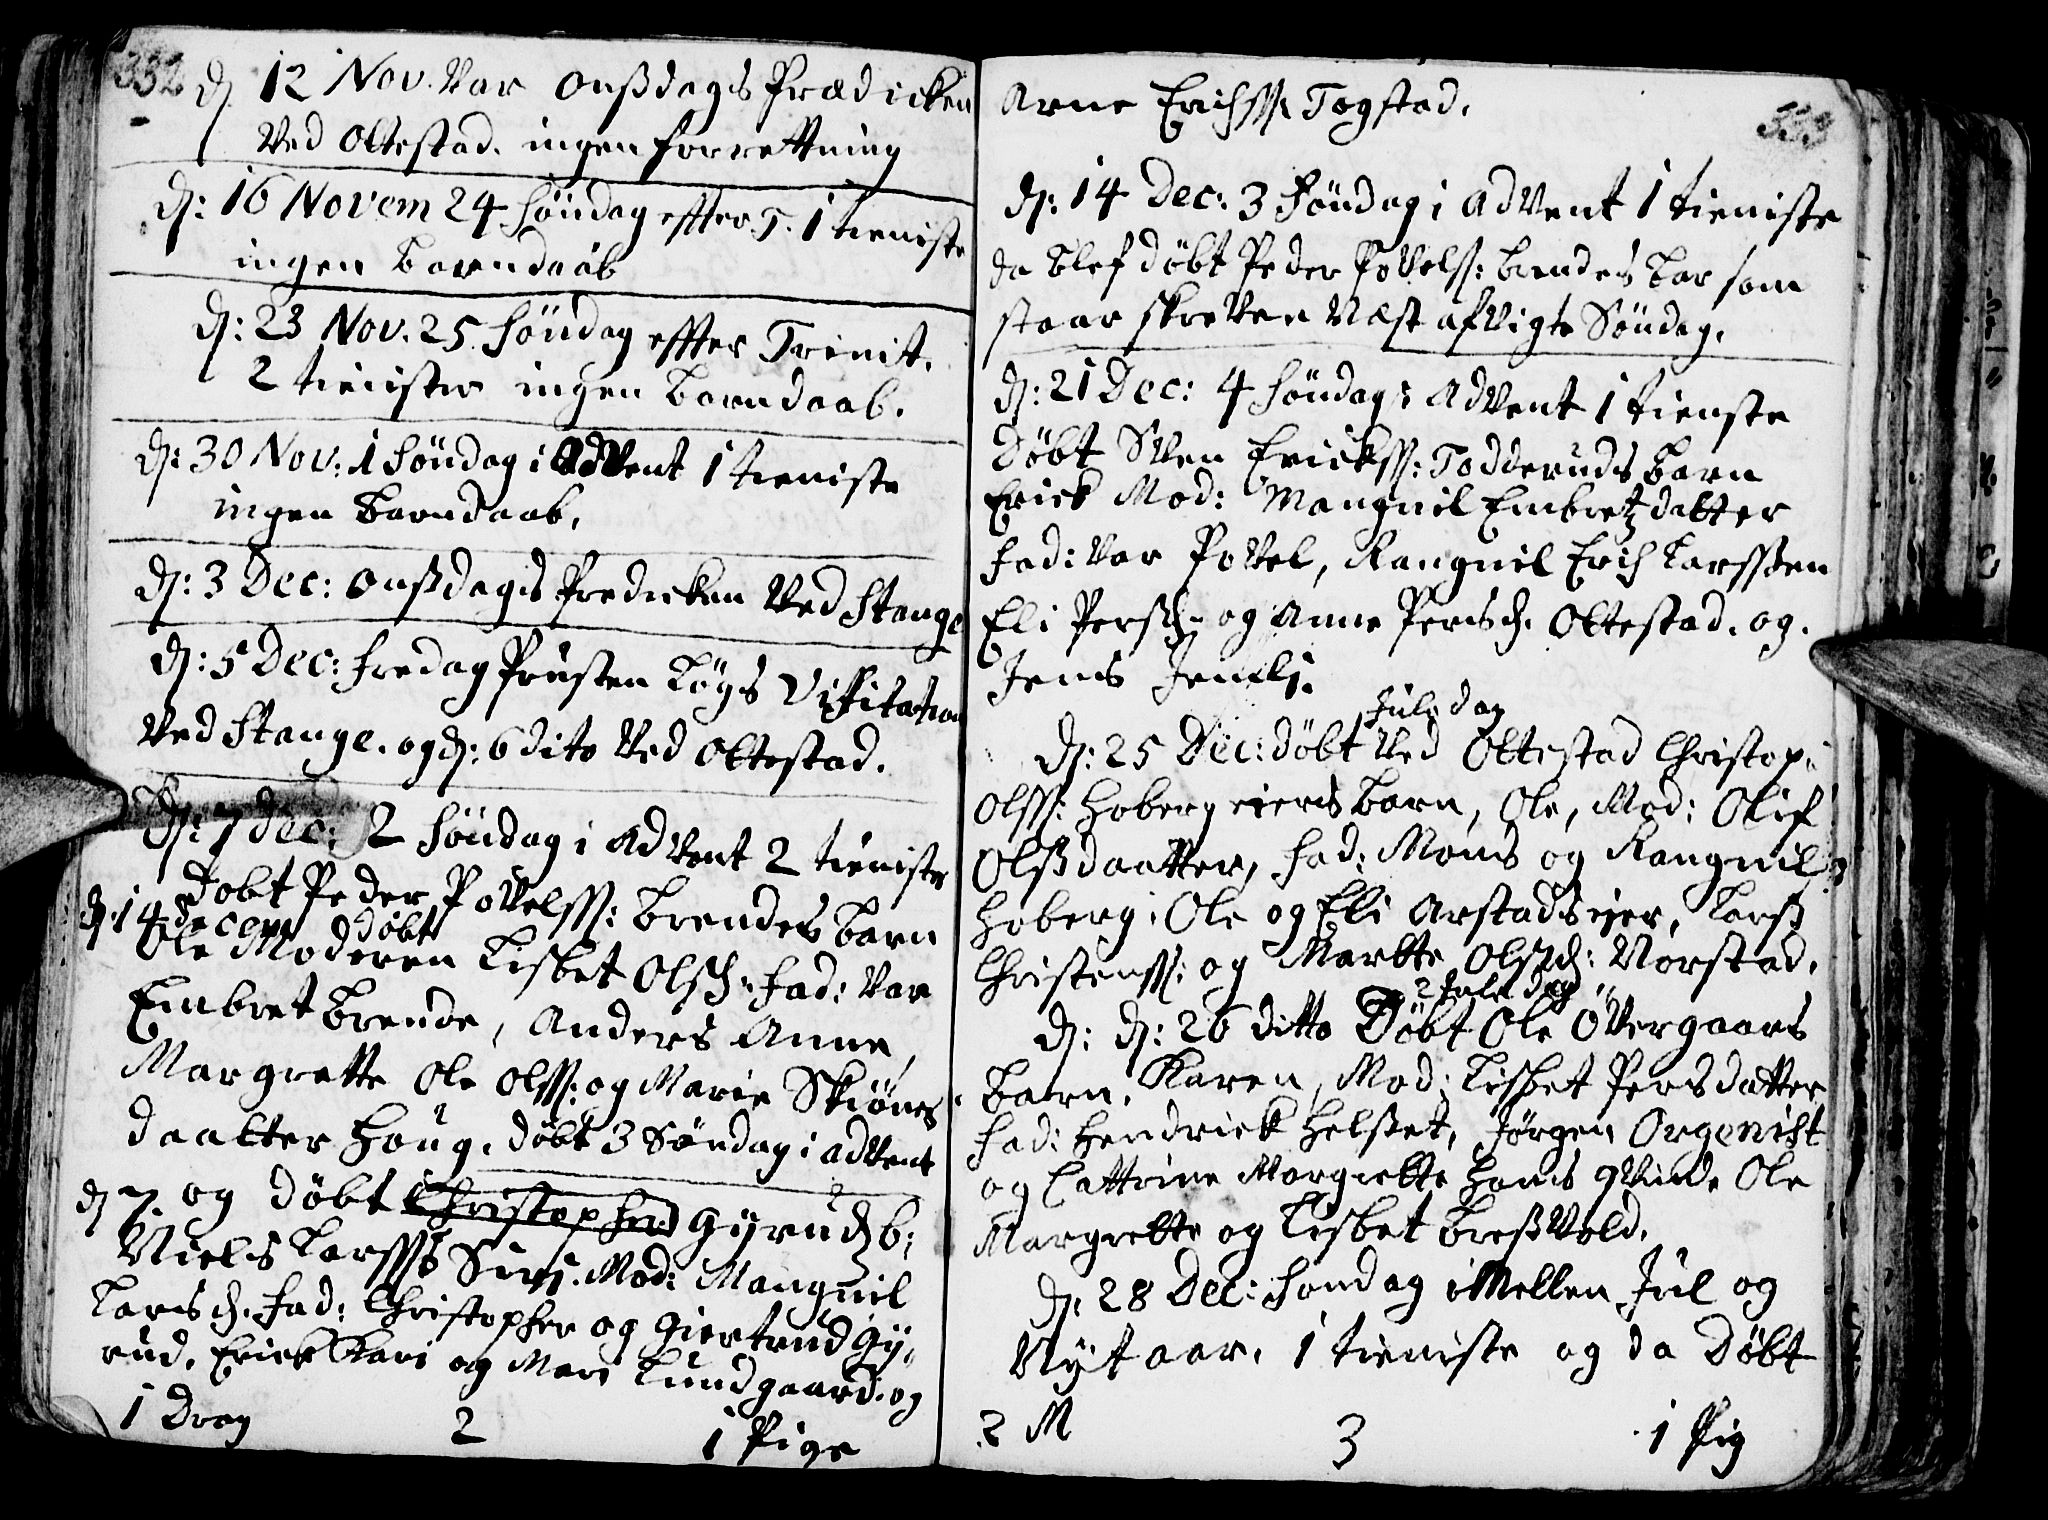 332
d. 12 Nov. Var Onßdags Prædicken
Ved Ottestad. ingen forrettning
d: 16 Novem 24 Søndag effter T. 1 tieniste
ingen barndaab
d: 23 Nov. 25 Søndag effter Trinit.
2 tienister ingen barndaab.
d: 30 Nov: 1 Søndag i AdVent 1 tieniste
ingen barndaab.
d: 3 Dec: Onßdags Predicken Ved Stange
d: 5 Dec: fredag Prusten Løgs Visitation
Ved Stange. og d: 6 dito Ved Ottestad.
d: 7 dec: 2 Søndag i AdVent 2 tienister
Døbt Peder Povelss: Brendes barn
d. 14 decem døbt
Ole Moderen Lisbet Olsd: fad: Var
Embret Brende, Anders Anne,
Margrette Ole Olss: og Marie Skiønes
daatter Houg. døbt 3 Søndag i adVent
d 7 og døbt Christopher Gyrudz b:
Niels Larsss Siri. Mod: Mangnil
Larsd. Fad: Christopher og Giertrud Gy-
rud. Erick Kari og Mari Lundgaard. og
1 Dreng 2 1 Pige
333
Arne Erichss: Togstad.
d: 14 Dec: 3 Søndag i AdVent 1 tieniste
da blef døbt Peder Povelss: Brendes bar som
staar skreven Næst afvigte Søndag.
d: 21 Dec: 4 Søndag i AdVent 1 tienste
Døbt Sven Erickss: Todderuds barn
Erick Mod: Mangnil Embretz datter
fad: Var Povel, Rangnil Erich Larssøen
Eli Persd: og Anne Persd. Ottestad. og
Jens
Juledag
d: 25 Dec: døbt Ved Ottestad Christop:
Olss: Hoberg eiers barn, Ole, Mod: Olif
Olßdaatter, fad: Mons og Rangnil
Hoberg: Ole og Eli Arstadseier, Larß
Christenss: og Martte Olsd: Norstad.
2 Juledag
d: d: 26 ditto Døbt Ole Øvergaars
barn. Karen, Mod: Lisbet Persdatter
fad: Hendrick Helset, Jørgen Orgenist
og Cattrine Margrette Hans qvinde Ole
Margrette og Lisbet Breßvold.
d. 28 Dec: Søndag iMellen Jul og
Nyt aar. 1 tieniste og da Døbt
2 M 3 1 Pig